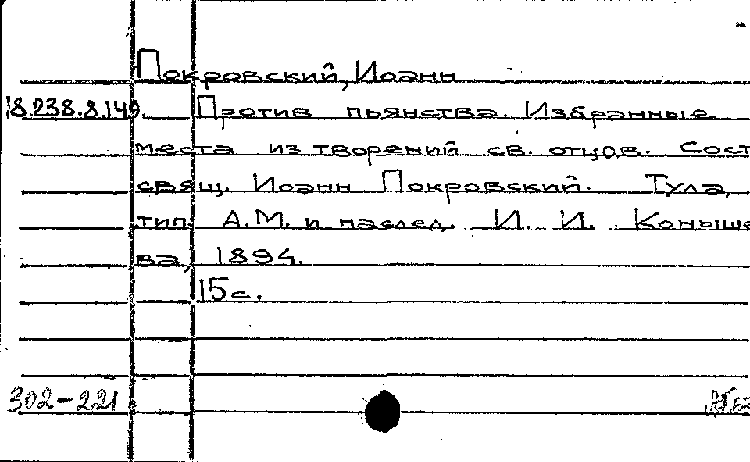 Покровский, Иоанн
18.238.8.149. Против пьянства. Избранные
места из творений св. отцов. Сост
свящ. Иоанн Покровский. Тула,
тип. А.М. и наслед. И. И. Коныше
ва, 1894.
15 с.
302-221